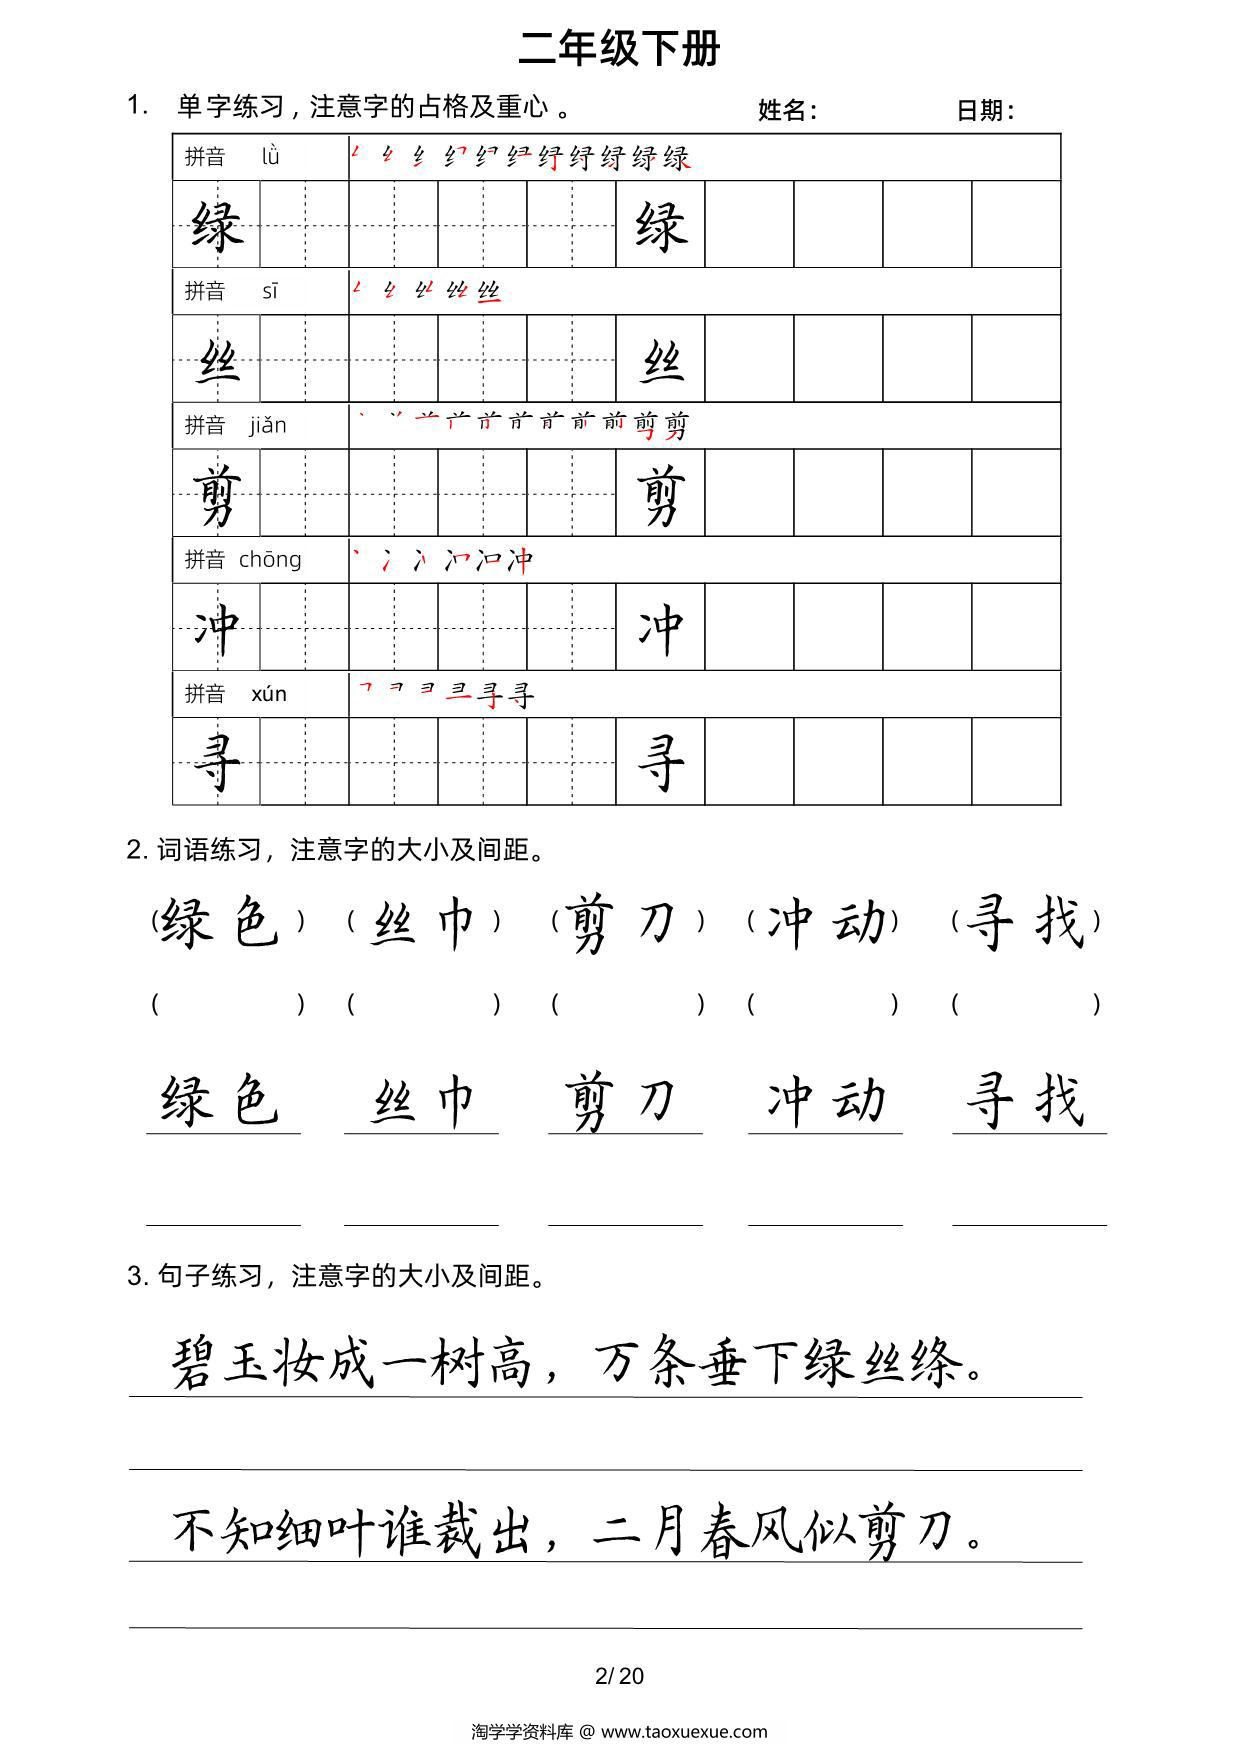 二年级下册
1. 单字练习，注意字的占格及重心。 姓名： 日期：
拼音 lǜ
绿 绿
拼音 sī
丝 丝
拼音 jiǎn
剪 剪
拼音 chōng
冲 冲
拼音 xún
寻 寻
2. 词语练习，注意字的大小及间距。
（绿色） （丝巾） （剪刀） （冲动） （寻找）
（ ） （ ） （ ） （ ） （ ）
绿色 丝巾 剪刀 冲动 寻找
3. 句子练习，注意字的大小及间距。
碧玉妆成一树高，万条垂下绿丝绦。
不知细叶谁裁出，二月春风似剪刀。
2/20
淘学学资料库 @ www.taoxuexue.com